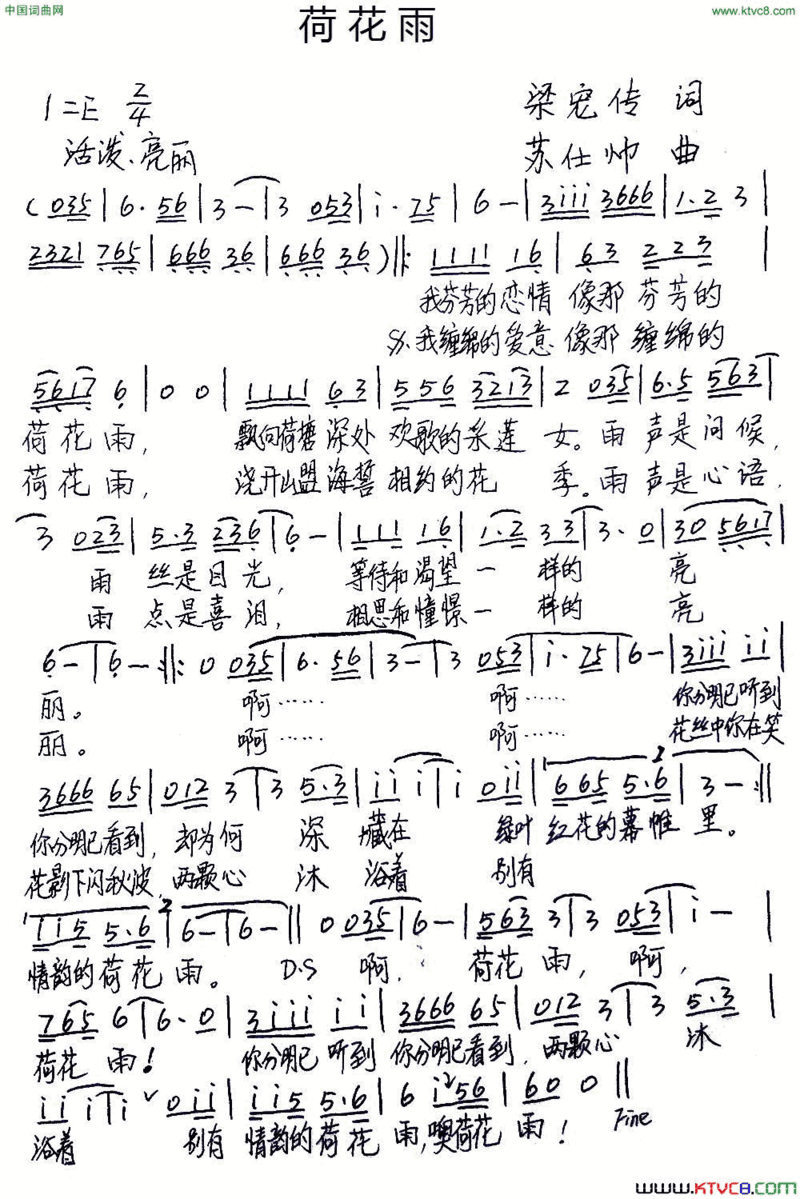 中国词曲网
www.ktvc8.com
荷花雨
1=E 2/4
梁宠传 词
活泼、亮丽
苏仕帅 曲
(035|6·56|3-|3 053|i·75|6-|3iii 3666|1·2 3|
2321 765|666 36|666 36)‖:1111 16|63 223|
我芬芳的恋情 像那 芬芳的
𝄋.我缠绵的爱意 像那 缠绵的
5617 6|0 0|1111 63|556 3213|2 035|6·5 563|
荷花雨, 飘向荷塘深处 欢歌的采莲 女。雨 声是问候,
荷花雨, 浇开山盟海誓 相约的花 季。雨 声是心语,
3 023|5·3 236|6-|111 16|1·2 33|3·0|30 5617|
雨 丝是目光, 等待和渴望一 样的 亮
雨 点是喜泪, 相思和憧憬一 样的 亮
6-|6-:‖:0 035|6·56|3-|3 053|i·75|6-|3iii ii|
丽。 啊…… 啊…… 你分明已听到
丽。 啊…… 啊…… 花丝中你在笑
3666 65|012 3|3 5·3|ii i|i 0ii|665 5·6|3-:‖
你分明已看到, 却为何 深 藏在 绿叶 红花的幕帷 里。
花影下闪秋波, 两颗心 沐 浴着 别有
ii5 5·6|6-|6-‖0 035|6-|563 3|3 053|i-|
情韵的荷花 雨。 D.S 啊, 荷花 雨, 啊,
765 6|6·0|3iii ii|3666 65|012 3|3 5·3|
荷花 雨! 你分明已 听到 你分明已看到, 两颗心 沐
ii i|i 0ii|ii5 5·6|6 i²56|60 0‖
浴着 别有 情韵的荷花 雨,噢荷花 雨! Fine
www.KTVC8.com